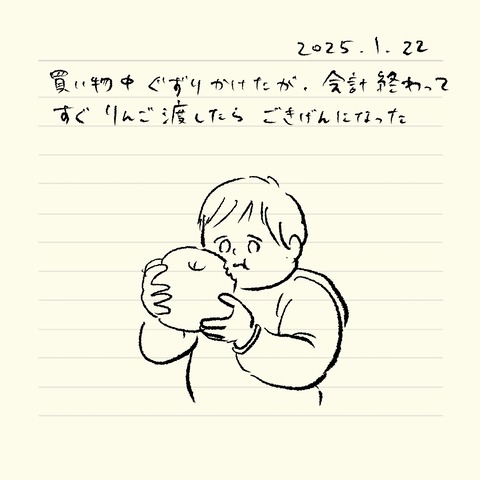 2025.1.22
買い物中 ぐずりかけたが、会計終わって
すぐ りんご渡したら ごきげんになった